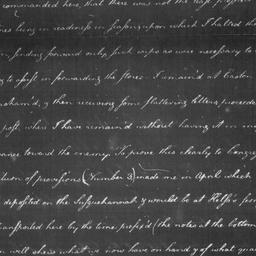 commanded here, that there was not the least
being in readiness in season upon which I halted the
in sending forward only such corps as were necessary to
to assist in forwarding the stores. I remain'd at Easton
& then receiving some flattering letters, proceeded
post, where I have remain'd without having it in my
toward the enemy. To prove this clearly to Congress
of provisions (Number 3) made me in April which
deposited on the Susquehannah & would be at Kelso's from
transported here by the time prefix'd (the notes at the bottom
will shew what we now have on hand & of what